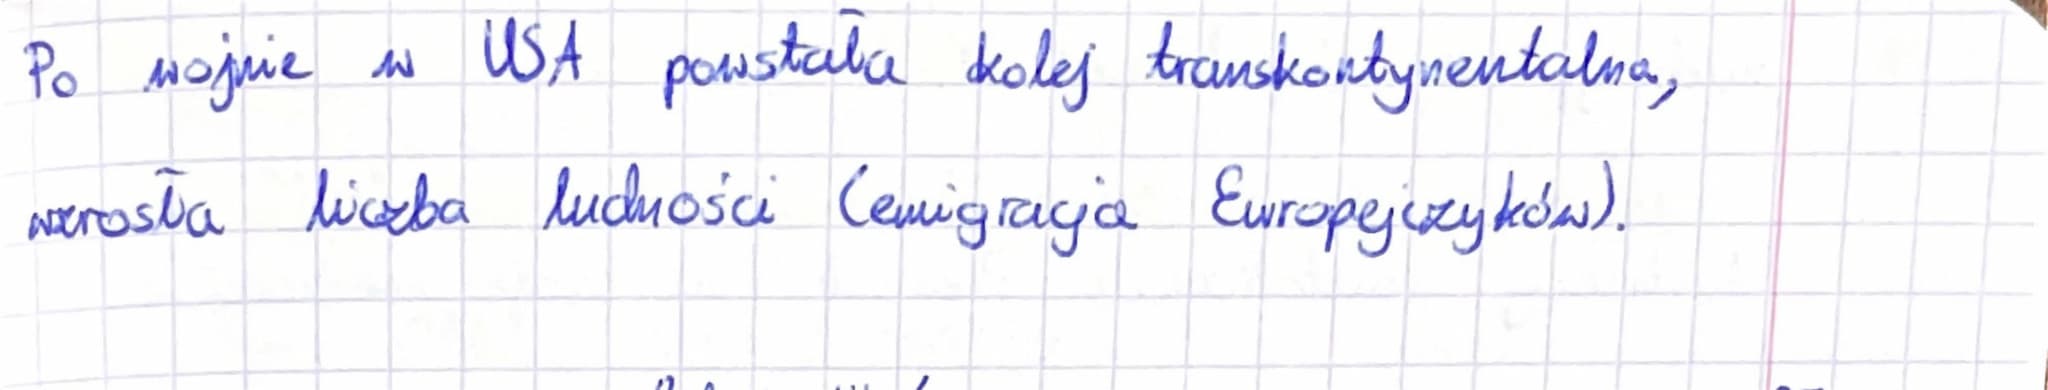 Po wojnie w USA powstała kolej transkontynentalna,
wzrosła liczba ludności (emigracja Europejczyków).